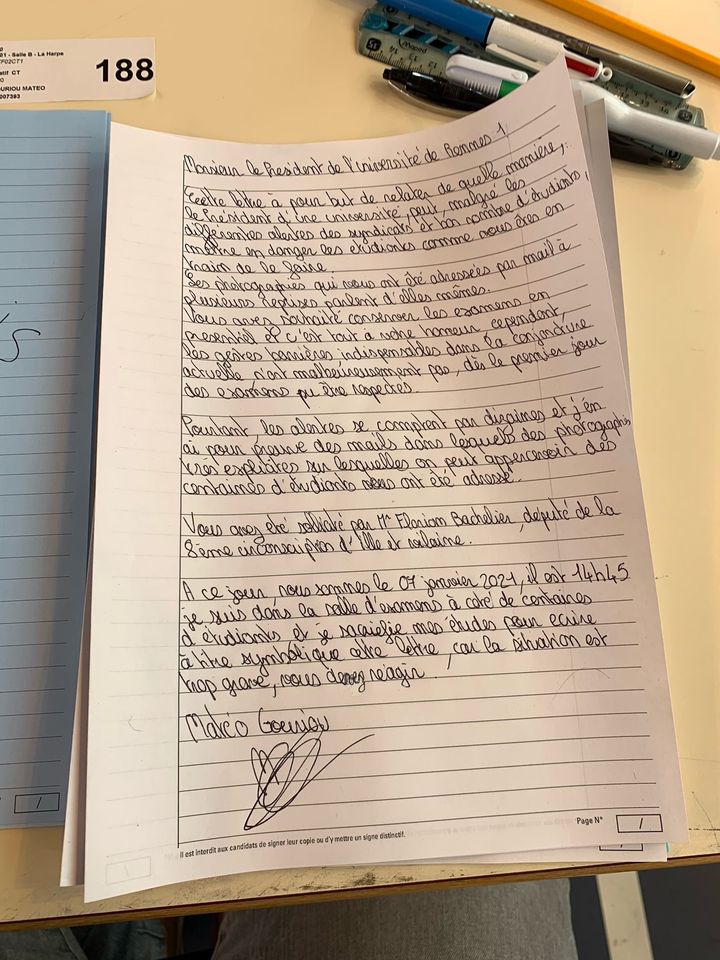 01 - Salle B - La Harpe
F02CT1
atif CT
OURIOU MATEO
007393
188
Maped
Monsieur le Président de l'université de Rennes 1,
Cette lettre à pour but de relater de quelle manière,
le Président d'une université, peut, malgré les
différentes alertes des syndicats et bon nombre d'étudiants,
mettre en danger les étudiants comme vous êtes en
train de le faire.
Les photographies qui vous ont été adressées par mail à
plusieurs reprises parlent d'elles mêmes.
Vous avez souhaité conserver les examens en
presentiel et c'est tout à votre honneur, cependant,
les gestes barrières indispensables dans la conjoncture
actuelle n'ont malheureusement pas, dès le premier jour
des examens pu être respectés.
Pourtant, les alertes se comptent par dizaines et j'en
ai pour preuve des mails dans lesquels des photographies
bien explicites sur lesquelles on peut appercevoir des
centaines d'étudiants vous ont été adressé.
Vous avez été sollicité par Mr Florian Bachelier, député de la
8ème circonscription d'Ille et vilaine.
A ce jour, nous sommes le 07 janvier 2021, il est 14h45
je suis dans la salle d'examens à coté de centaines
d'étudiants et je sacrifie mes études pour ecrire
à titre symbolique cette lettre, car la situation est
trop grave, vous devez réagir.
Matéo Gouriou
Il est interdit aux candidats de signer leur copie ou d'y mettre un signe distinctif.
Page N°
/